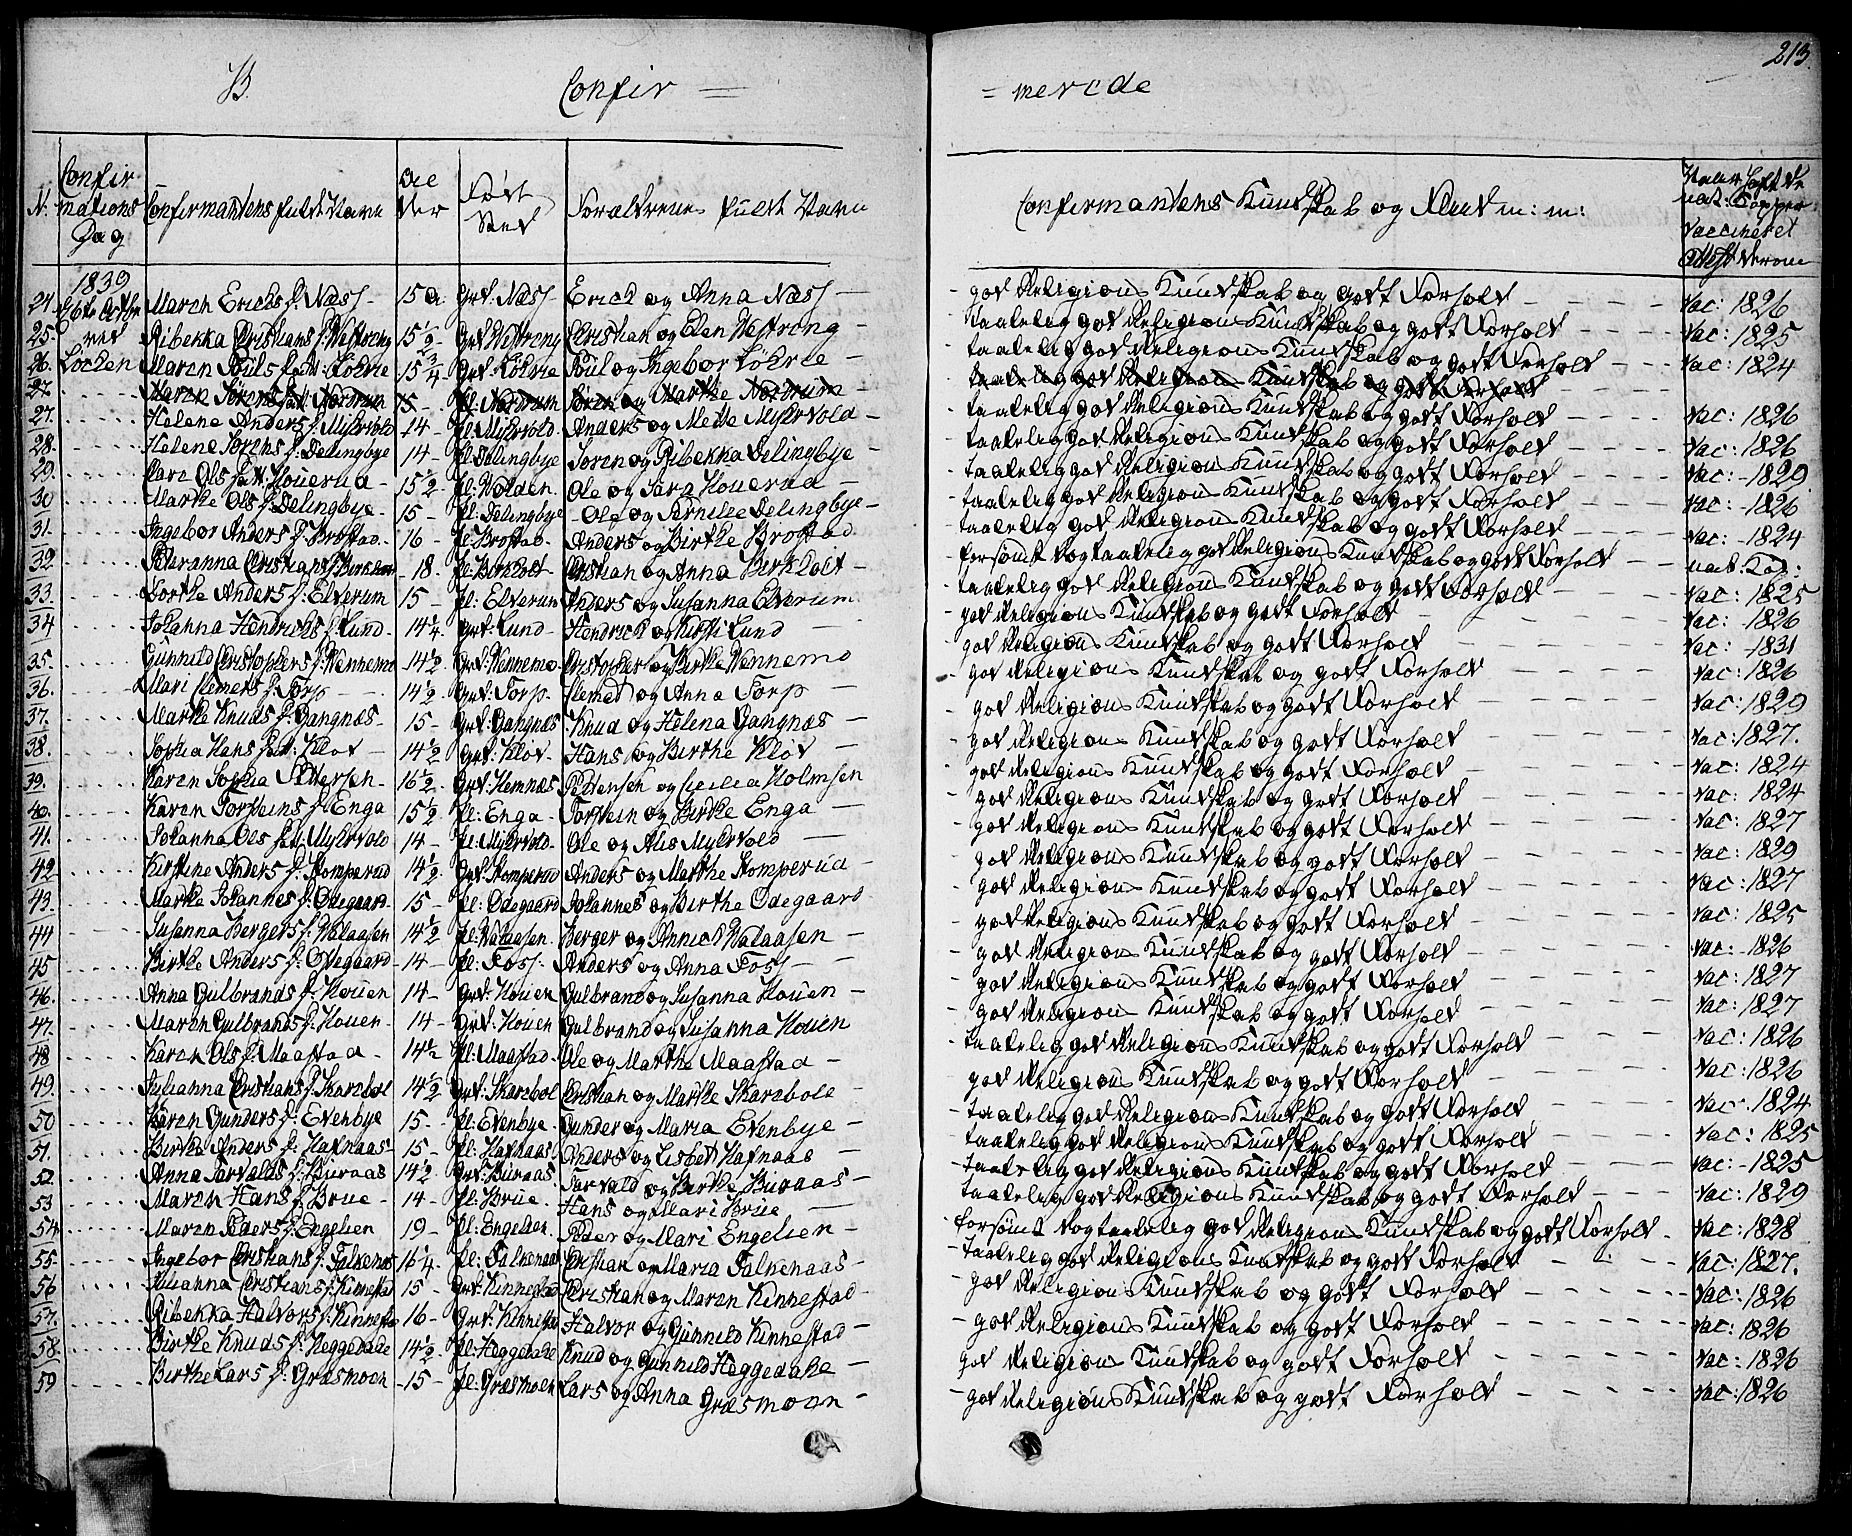 213.
B. Confir = = merede
N. Confirmations Dag Confirmandens fulde Navn Alder Føde Sted Forældrenes fulde Navn Confirmandens Kundskab og Flid m: m:
Vaccineret
1839
24. 6te Octbr Maren Erichs d. Næss - 15 a. Grd: Næss Erich og Anna Næss - god Religions Kundskab og godt Forhold - Vac: 1826
25. ved Ribekka Christians d. Westreng 15 1/2 Grd. Westreng Christian og Elen Westreng - taalelig god Religions Kundskab og godt Forhold - Vac: 1825
26. Løcken Maren Pouls datt: Löhrie 15 3/4 Grd. Löhrie Poul og Ingebor Löhrie - taalelig god Religions Kundskab og godt Forhold - Vac: 1824
27. Maren Sörens datt: Nordrum 15 - Pl: Nordrum Sören og Marthe Nordrum - taalelig god Religions Kundskab og godt Forhold
27. Helene Anders d. Myhrvold 14 - Pl: Myhrvold. Anders og Mette Myhrvold - taalelig god Religions Kundskab og godt Forhold - Vac: 1826
28. Helene Sörens d. Delingbye 14 - Pl: Delingbye - Sören og Ribekka Delingbye - taalelig god Religions Kundskab og godt Forhold - Vac: 1826
29. Karen Ols datt: Houerud - 15 1/2 Pl: Wolden. Ole og Sara Houerud - taalelig god Religions Kundskab og godt Forhold - Vac: - 1829.
30 Marthe Ols d. Delingbye - 15 - Pl: Delingbye - Ole og Pernille Delingbye - taalelig god Religions Kundskab og godt Forhold - Vac: - 1826
31. Ingebor Anders d. Brostad. 16 - Pl: Brostad. Anders og Birthe Brostad. taalelig god Religions Kundskab og godt Forhold - Vac: - 1824
32. Peteranna Christians d. - 18. Pl: Birkholt Christian og Anna Birkholt - forsømt dog taalelig god Religions Kundskab og godt Forhold - nat. Kop:
33. Dorthe Anders d. Elverum 15 - Pl: Elverum Anders og Susanna Elverum. taalelig god Religions Kundskab og godt Forhold - Vac: 1825
34 Johanna Hendrichs d. Lund. 14 1/4. Grd: Lund - Hendrich og Lund - god Religions Kundskab og godt Forhold - Vac: - 1826
35. Gunnild Christophers d. Wennemo 14 1/2 Grd: Wennemo Christopher og Birthe Wennemo god Religions Kundskab og godt Forhold Vac: - 1831
36. Mari Clemets d. Torp - 14 1/2 Grd: Torp. Clemet og Anna Torp - god Religions Kundskab og godt Forhold - Vac: 1826
37. Marthe Knuds d. Gangnæs - 15 - Grd: Gangnæs Knud og Helena Gangnæs - god Religions Kundskab og godt Forhold - Vac: 1829
38. Sophia Hans datt: Klov - 14 1/2 Grd: Klov - Hans og Birthe Klov - god Religions Kundskab og godt Forhold - Vac: 1827.
39. Karen Sophia Pettersen - 16 1/2. Grd: Hemnæs Pettersen og Cecilia Holmsen god Religions Kundskab og godt Forhold - Vac: 1824
40. Karen Torsteins d. Enga - 15 1/2 Pl: Enga - Torstein og Birthe Enga - god Religions Kundskab og godt Forhold - Vac: 1824
41. Johanna Ols datt: Myhrvold 14 - Pl: Myhrvold. Ole og Alis Myhrvold - god Religions Kundskab og godt Forhold - Vac: 1827
42 Kirstine Anders d. Stomperud 14 1/2. Grd: Stomperud Anders og Marthe Stomperud - god Religions Kundskab og godt Forhold - Vac: 1829
43. Marthe Johannes d. Ødegaard. 15 - Pl: Ødegaard Johannes og Birthe Ødegaard god Religions Kundskab og godt Forhold - Vac: 1827
44 Susanna Bergers d. Walaasen 14 1/2 Pl: Walaasen. Berger og Annich Walaasen - god Religions Kundskab og godt Forhold - Vac: 1825
45 Birthe Anders d. Ødegaard - 14 - Pl: Foss. Anders og Anna Foss - god Religions Kundskab og godt Forhold - Vac: - 1826
46. Anna Gulbrands d. Houen 14 - Grd: Houen Gulbrand og Susanna Houen - god Religions Kundskab og godt Forhold - Vac: 1827
47. Maren Gulbrands d. Houen - 14 - Grd: Houen - Gulbrand og Susanna Houen god Religions Kundskab og godt Forhold - Vac: 1827
48 Karen Ols d. Maastad - 14 1/2 Pl: Maastad. Ole og Marthe Maastad - taalelig god Religions Kundskab og godt Forhold - Vac: 1826
49. Julianna Christians d. Skarebøl 14 1/2 Grd: Skarebøl Christian og Marthe Skarebøle god Religions Kundskab og godt Forhold - Vac: 1826
50 Karen Gunders d. Evenbye 15 - Pl: Evenbye. Gunder og Maria Evenbye - taalelig god Religions Kundskab og godt Forhold - Vac. 1824
51. Birthe Anders d. Hafnaas - 15 - Pl: Hafnaas Anders og Lisbet Hafnaas - taalelig god Religions Kundskab og godt Forhold - Vac: 1825
52 Anna Torvalds d. Buraas 14 1/2 Grd: Buraas. Torvald og Birthe Buraas - taalelig god Religions Kundskab og godt Forhold - Vac: - 1825
53 Maren Hans d. Brue - 14 - Pl: Brue - Hans og Mari Brue - taalelig god Religions Kundskab og godt Forhold - Vac: 1829
54. Maren Peders d. Engelien 19 - Pl: Engelien. Peder og Mari Engelien - forsømt dog taalelig god Religions Kundskab og godt Forhold - Vac: 1828
55. Ingebor Christians d. Falkenaas 16 1/4. Pl: Falkenaas Christian og Maria Falkenaas - taalelig god Religions Kundskab og godt Forhold - Vac: 1827.
56 Julianna Christians d. Kinnestad 15 - Grd: Kinnestad Christian og Maren Kinnestad - god Religions Kundskab og godt Forhold - Vac: 1826
57. Ribekka Halvors d. Kinnestad 16 - Grd: Kinnestad Halvor og Gunnild Kinnestad - god Religions Kundskab og godt Forhold - Vac: 1826
58. Birthe Knuds d. Heggedahl 14 1/2. Pl: Heggedahl Knud og Gunnild Heggedahl - god Religions Kundskab og godt Forhold - Vac: 1826
59 Birthe Lars d. Græsmoen - 15 - Pl: Græsmoen Lars og Anna Græsmoen - god Religions Kundskab og godt Forhold - Vac: 1826